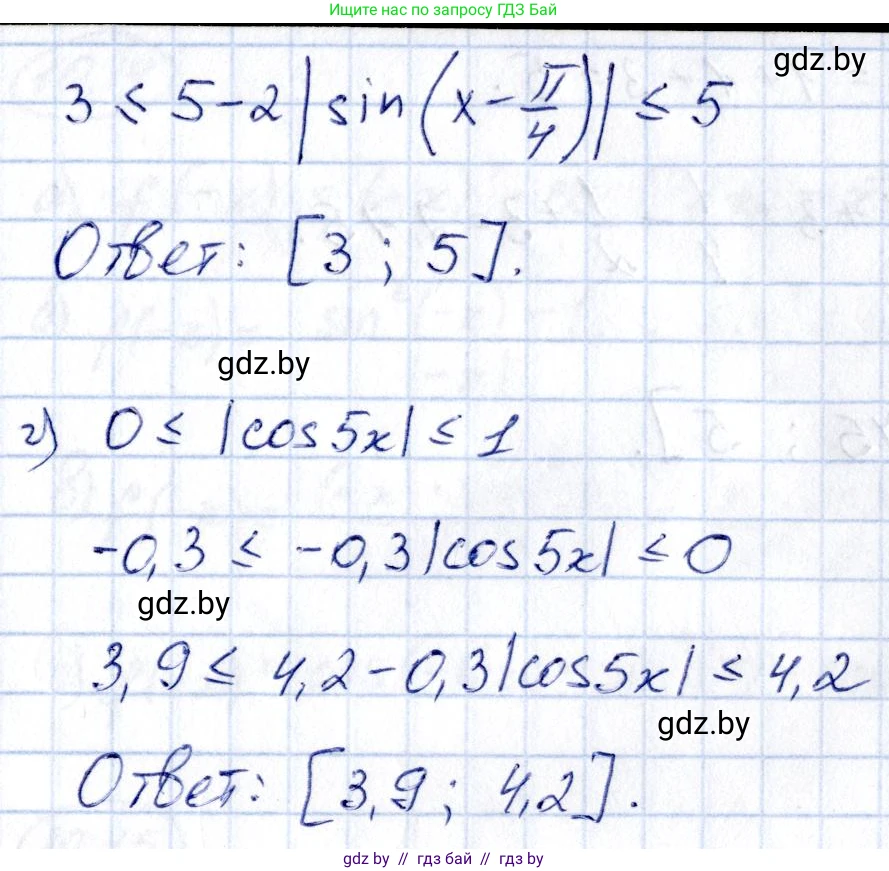 Ищите нас по запросу ГДЗ Бай
gdz.by
3 ≤ 5 - 2 |sin(x - π/4)| ≤ 5
Ответ: [3 ; 5].
gdz.by
г) 0 ≤ |cos 5x| ≤ 1
-0,3 ≤ -0,3|cos 5x| ≤ 0
gdz.by
3,9 ≤ 4,2 - 0,3|cos 5x| ≤ 4,2
gdz.by
Ответ: [3,9 ; 4,2].
gdz by // гдз бай // гдз by